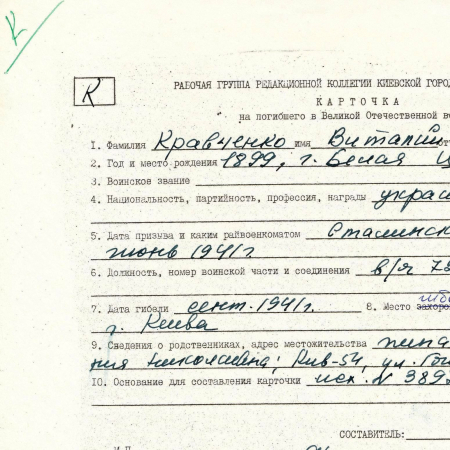 К
К
РАБОЧАЯ ГРУППА РЕДАКЦИОННОЙ КОЛЛЕГИИ КИЕВСКОЙ ГОРО
КАРТОЧКА
на погибшего в Великой Отечественной во
1. Фамилия Кравченко имя Виталий от
2. Год и место рождения 1899, г. Белая Ц
3. Воинское звание
4. Национальность, партийность, профессия, награды украи
5. Дата призыва и каким райвоенкоматом Сталинск
июнь 1941 г.
6. Должность, номер воинской части и соединения в/я
7. Дата гибели сент. 1941 г. 8. Место захоро
г. Киева
9. Сведения о родственниках, адрес местожительства
Николаевна; Киев-54, ул.
10. Основание для составления карточки исх. № 389
СОСТАВИТЕЛЬ:
М.П.